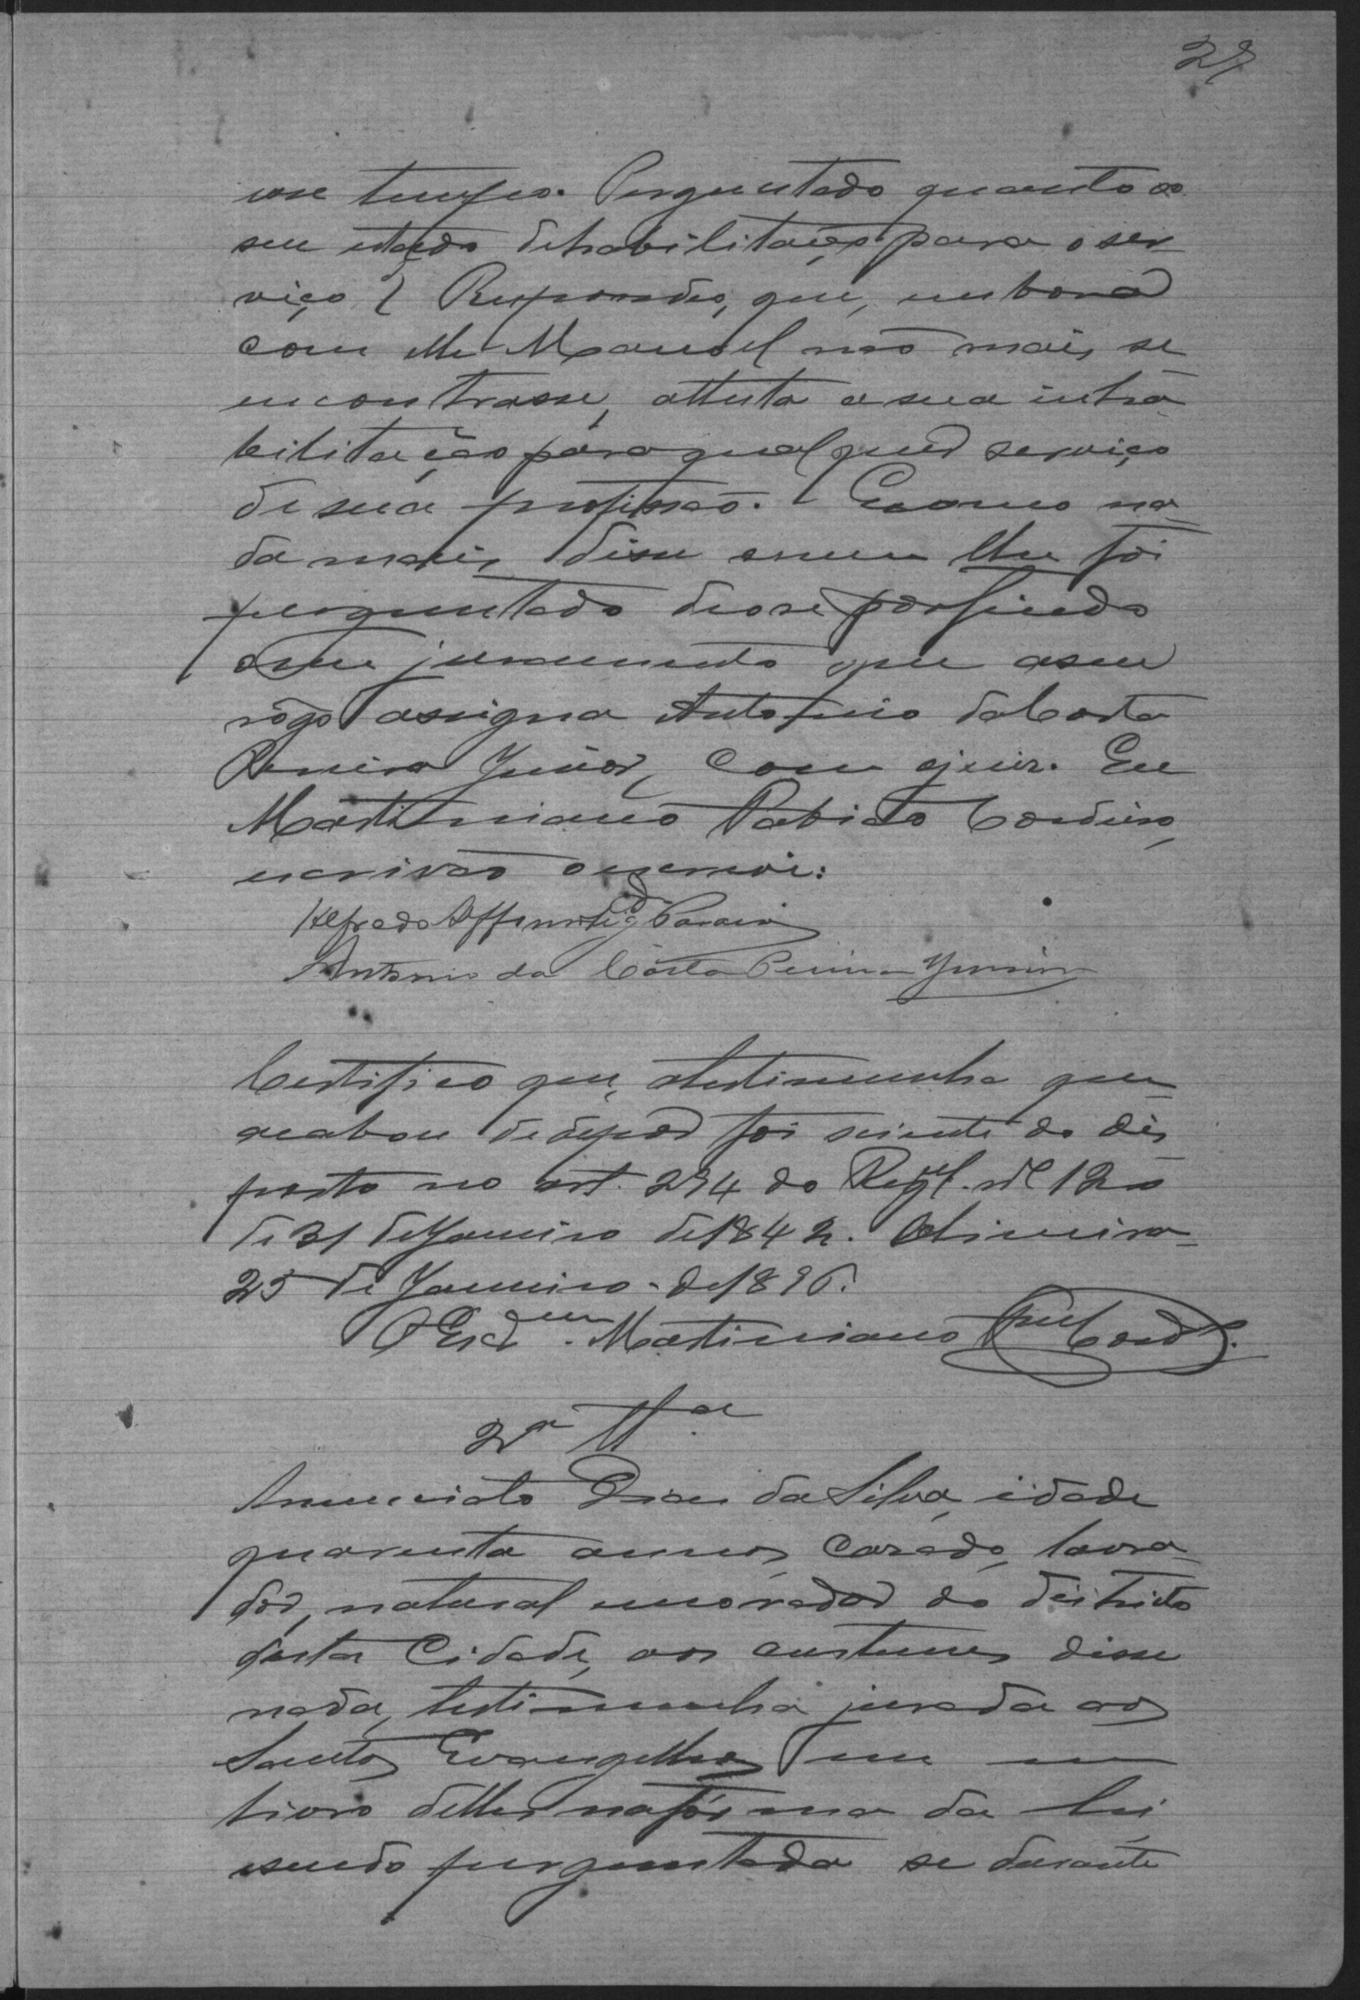 27
esse tempo. Perguntado quanto ao
seu estado de habilitação para o ser
viço? Respondeo, que, embora
com elle Manoel não mais se
encontrasse, attesta a sua inha
bilitação para qualquer serviço
de sua profissão. E como na
da mais disse e nem lhe foi
perguntado deo-se por findo
o seu juramento que a seu
rôgo assigna Antonio da Costa
Pereira Junior, com o juiz. Eu
Martiniano Cordeiro,
escrivão o escrevi:
Alfredo
Antonio da Costa Pereira Junior
Certifico que, a testimunha que
acabou de depôr foi sciente do dis
posto no art. 294 do Regul. nº 120
de 31 de Janeiro de 1842. Oliveira
25 de Janeiro de 1896.
O Escr.am Martiniano Cord.º
2ª Tt.ª
Annunciato Dias da Silva, idade
quarenta annos, casado, lavra
dor, natural e morador do districto
desta Cidade, aos custumes disse
nada, testimunha jurada aos
Santos Evangelhos em um
livro delles na fórma da lei
e sendo perguntada se durante